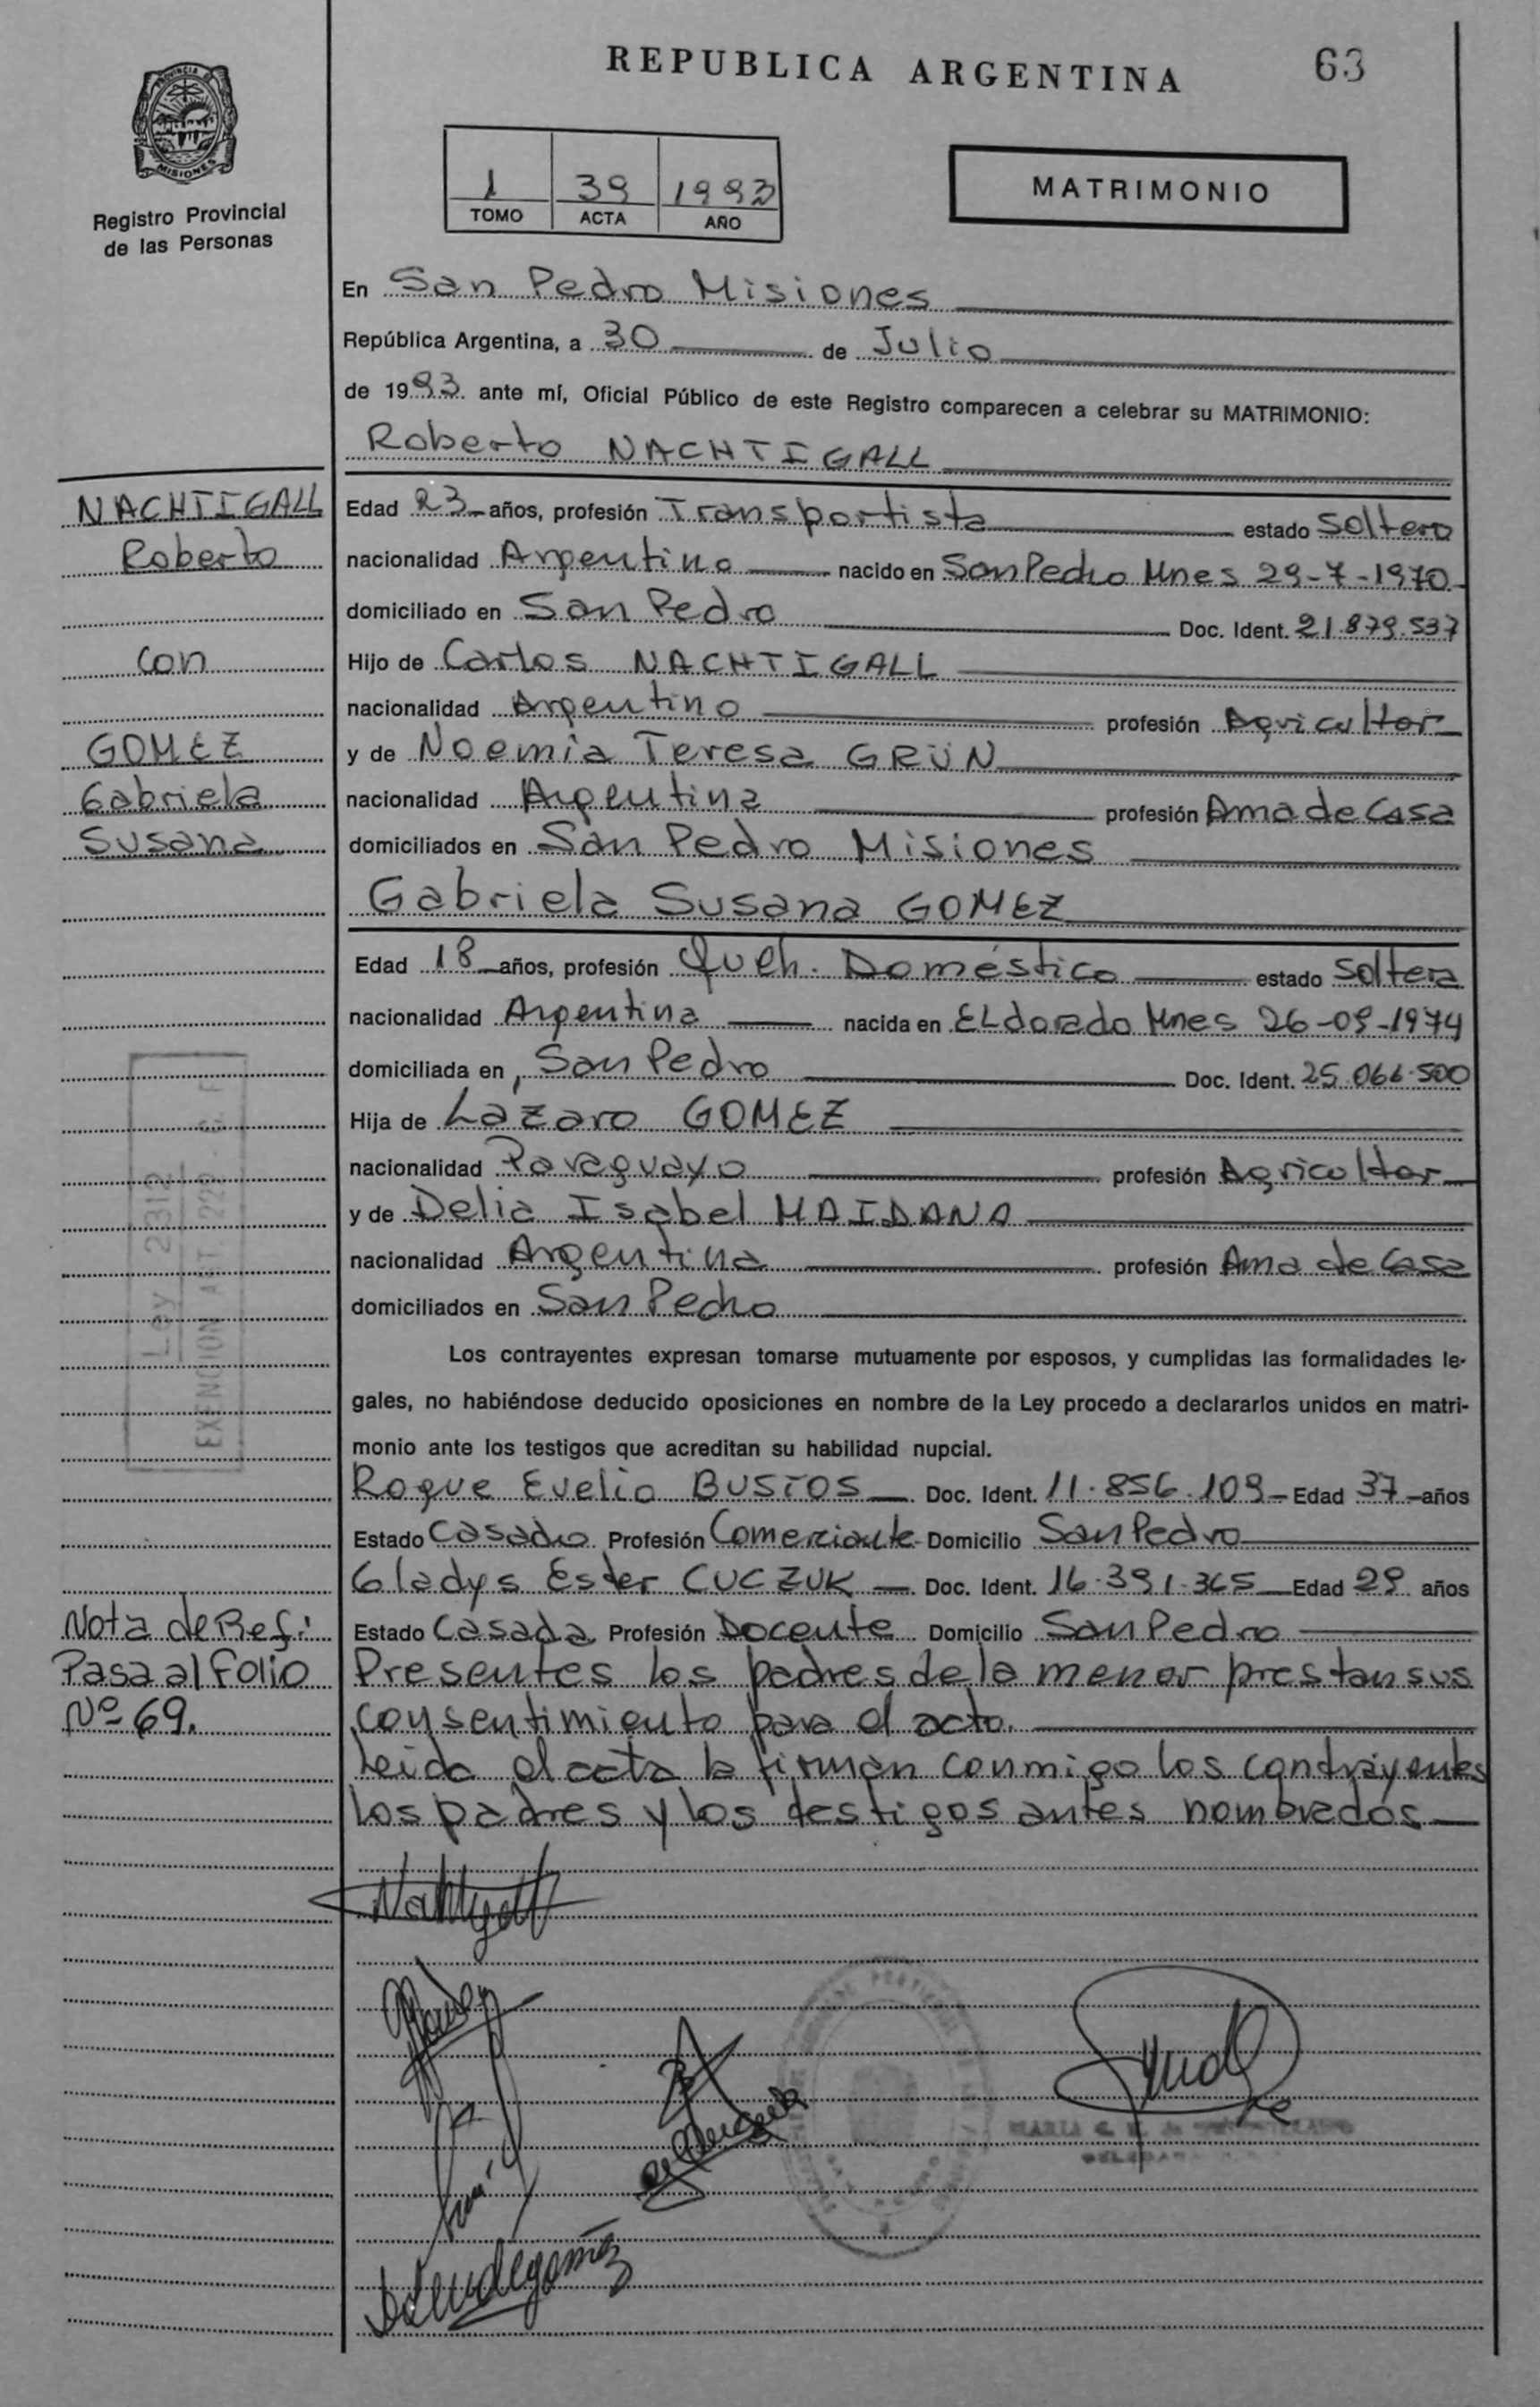 REPUBLICA ARGENTINA
63
MISIONES
Registro Provincial
de las Personas
1 39 1993
TOMO ACTA AÑO
MATRIMONIO
En San Pedro Misiones
República Argentina, a 30 de Julio
de 1993 ante mí, Oficial Público de este Registro comparecen a celebrar su MATRIMONIO:
Roberto NACHTIGALL
Edad 23 años, profesión Transportista estado Soltero
nacionalidad Argentino nacido en San Pedro Mnes 29-7-1970
domiciliado en San Pedro Doc. Ident. 21.879.537
Hijo de Carlos NACHTIGALL
nacionalidad Argentino profesión Agricultor
y de Noemia Teresa GRÜN
nacionalidad Argentina profesión Ama de Casa
domiciliados en San Pedro Misiones
Gabriela Susana GOMEZ
Edad 18 años, profesión Queh. Doméstico estado Soltera
nacionalidad Argentina nacida en ELdorado Mnes 26-09-1974
domiciliada en San Pedro Doc. Ident. 25.066.500
Hija de Lázaro GOMEZ
nacionalidad Paraguayo profesión Agricultor
y de Delia Isabel MAIDANA
nacionalidad Argentina profesión Ama de Casa
domiciliados en San Pedro
Los contrayentes expresan tomarse mutuamente por esposos, y cumplidas las formalidades le-
gales, no habiéndose deducido oposiciones en nombre de la Ley procedo a declararlos unidos en matri-
monio ante los testigos que acreditan su habilidad nupcial.
Roque Evelio BUSTOS Doc. Ident. 11.856.109 Edad 37 años
Estado Casado Profesión Comerciante Domicilio San Pedro
Gladys Ester CUCZUK Doc. Ident. 16.391.365 Edad 29 años
Estado Casada Profesión Docente Domicilio San Pedro
Presentes los padres de la menor prestan sus
consentimiento para el acto.
Leida el acta la firman conmigo los contrayentes
los padres y los testigos antes nombrados
NACHTIGALL
Roberto
con
GOMEZ
Gabriela
Susana
Ley 2312
EXENCION ART 229
Nota de Ref:
Pasa al Folio
Nº 69.
MARIA